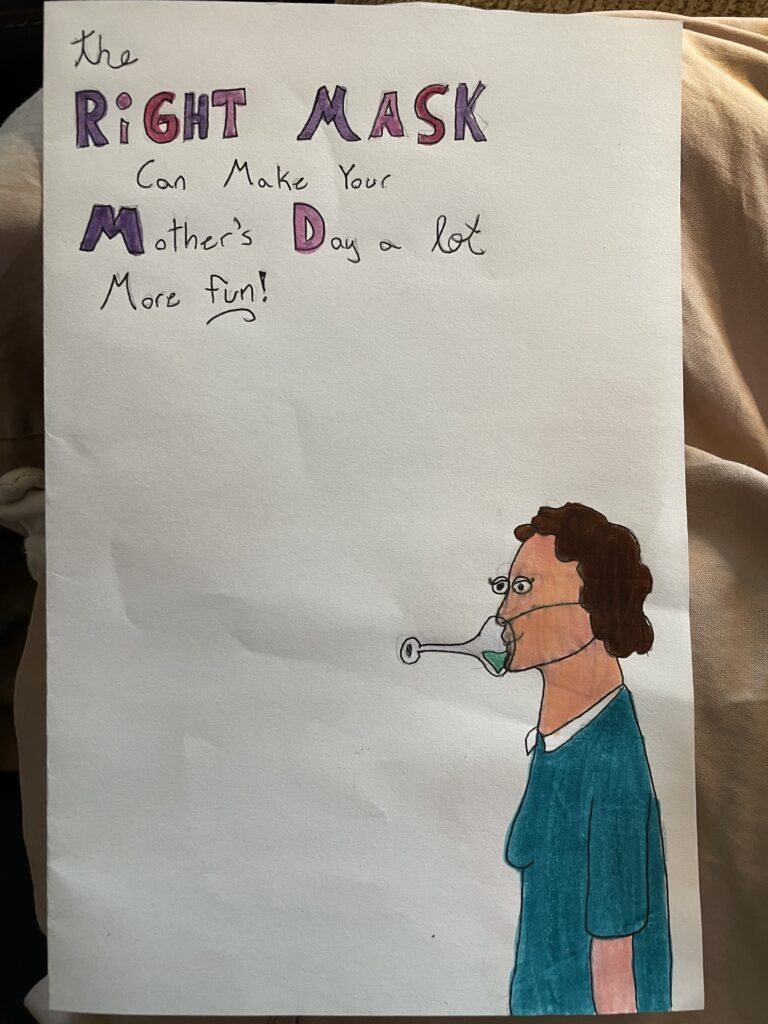 the
RiGHT MASK
Can Make Your
Mother's Day a lot
More fun!